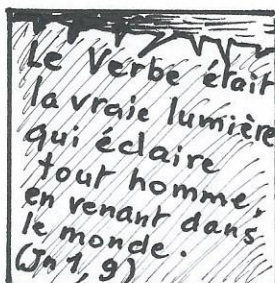 Le Verbe était
la vraie lumière
qui éclaire
tout homme,
en venant dans
le monde.
(Jn 1, 9)